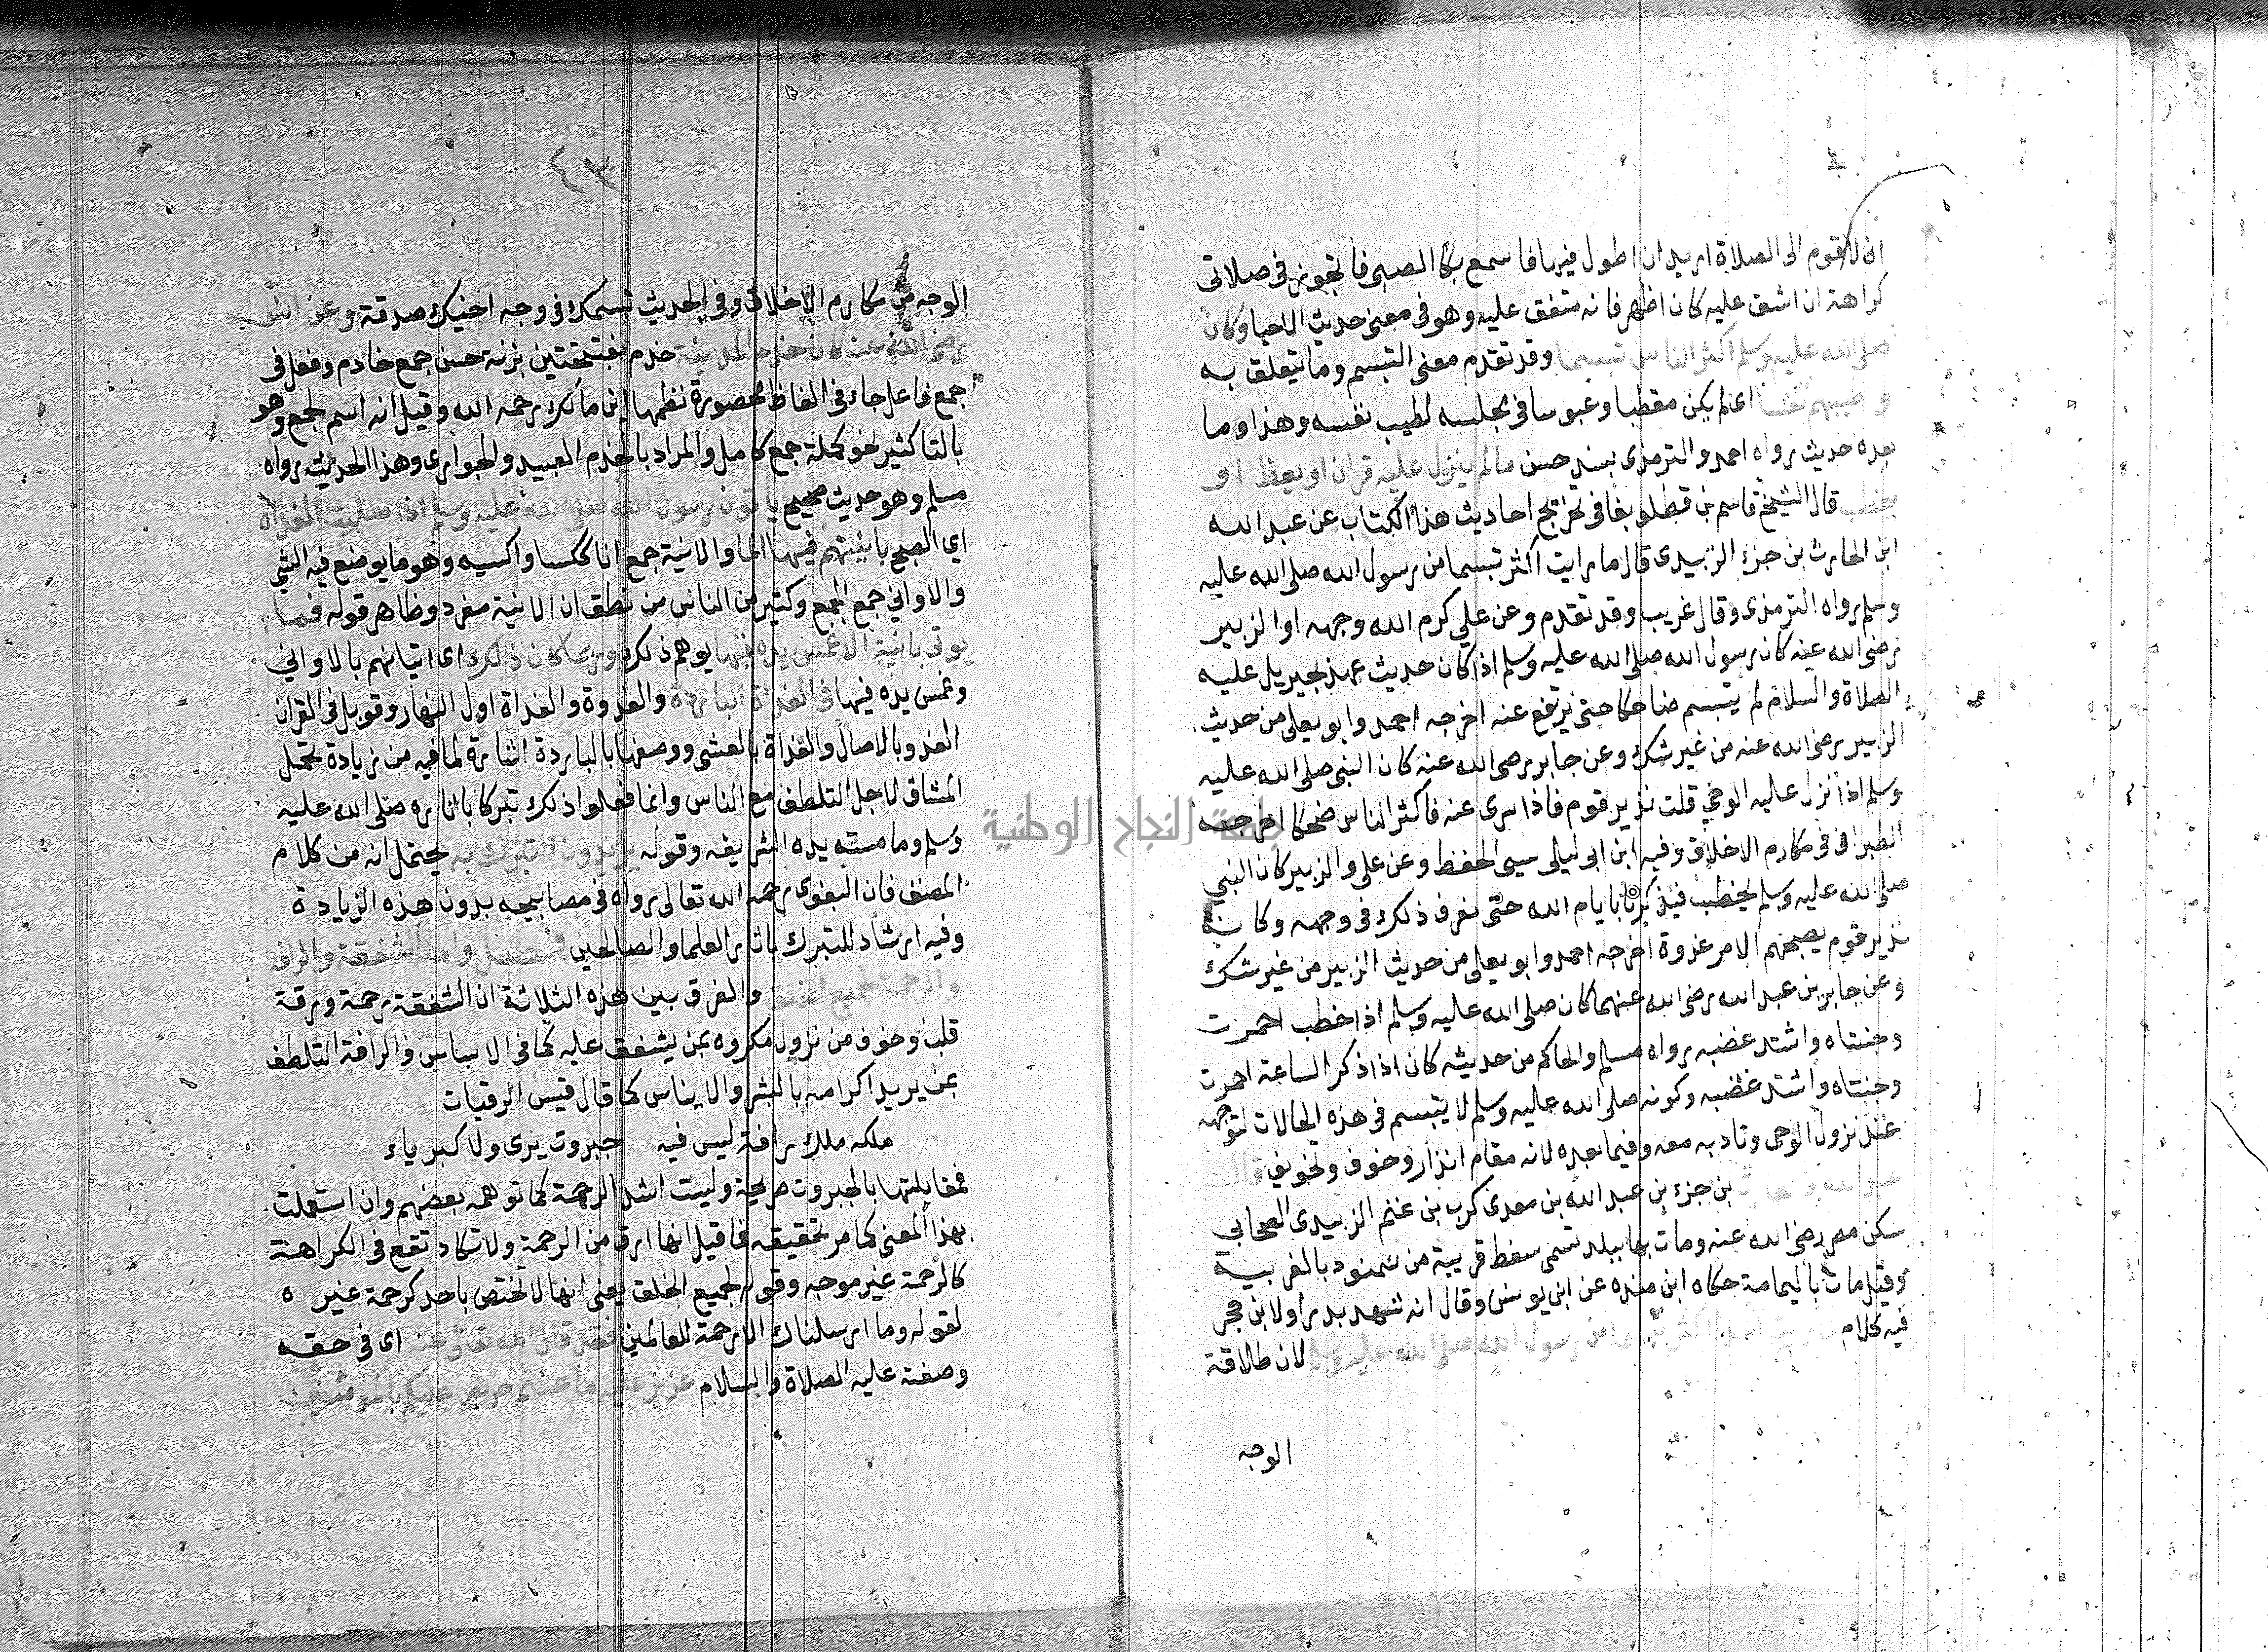 انى لاقوم الى الصلاة اريد ان اطول فيها فاسمع بكا الصبى فاتجوز فى صلاتى
كراهة ان اشق عليه كان اظهر فانه متفق عليه وهو فى معنى حديث الاحيا وكان
صلى الله عليه وسلم اكثر الناس تبسما وقد تقدم معنى التبسم وما يتعلق به
واطيبهم نفسا اى لم يكن مقطبا وعبوسا فى مجلسه لطيب نفسه وهذا وما
بعده حديث رواه احمد والترمذى بسند حسن مالم ينزل عليه قران او يعظ او
يخطب قال الشيخ قاسم بن قطلوبغا فى تخريج احاديث هذا الكتاب عن عبد الله
ابن الحارث بن جزء الزبيدى قال ما رايت اكثر تبسما من رسول الله صلى الله عليه
وسلم رواه الترمذى وقال غريب وقد تقدم وعن علي كرم الله وجهه او الزبير
رضى الله عنه كان رسول الله صلى الله عليه وسلم اذا كان حديث عهد بجبريل عليه
الصلاة والسلام لم يتبسم ضاحكا حتى يرتفع عنه اخرجه احمد وابو يعلى من حديث
الزبير رضى الله عنه من غير شك وعن جابر رضى الله عنه كان النبى صلى الله عليه
وسلم اذا نزل عليه الوحي قلت نذير قوم فاذا سرى عنه فاكثر الناس ضحكا اخرجه
الطبرانى فى مكارم الاخلاق وفيه ابن ابى ليلى سيى الحفظ وعن على والزبير كان النبي
صلى الله عليه وسلم يخطب فيذكرنا بايام الله حتى نعرف ذلك فى وجهه وكانه
نذير قوم يصبحهم الامر غدوة اخرجه احمد وابو يعلى من حديث الزبير من غير شك
وعن جابر بن عبد الله رضى الله عنهما كان صلى الله عليه وسلم اذا خطب احمرت
وجنتاه واشتد غضبه رواه مسلم والحاكم من حديثه كان اذا ذكر الساعة احمرت
وجنتاه واشتد غضبه وكونه صلى الله عليه وسلم لا يتبسم فى هذه الحالات لتوجهه
عند نزول الوحى وتادبه معه وفيما بعده لانه مقام انذار وخوف وتخويف قال
عبد الله بن الحارث بن جزء بن عبد الله بن معدى كرب بن غنم الزبيدى الصحابي
سكن مصر رضى الله عنه ومات بها ببلد تسمى سفط قريبة من سمنود بالغربية
وقيل مات باليمامة حكاه ابن منده عن ابن يونس وقال انه شهد بدرا ولابن حجر
فيه كلام ما رايت احدا اكثر تبسما من رسول الله صلى الله عليه وسلم لان طلاقة
الوجه
٤٣
الوجه من مكارم الاخلاق وفى الحديث تبسمك فى وجه اخيك صدقة وعن انس
رضى الله عنه كان خدم المدينة خدم بفتحتين بزنة حسن جمع خادم وفعل فى
جمع فاعل جاء فى الفاظ محصورة نظمها ابن مالك رحمه الله وقيل انه اسم لجمع وهو
بالتا كثير نحو كملة جمع كامل والمراد بالخدم العبيد والجوارى وهذا الحديث رواه
مسلم وهو حديث صحيح ياتون رسول الله صلى الله عليه وسلم اذا صليت الغداة
اي الصبح بانيتهم فيها الما والانية جمع انا ككسا واكسيه وهو ما يوضع فيه الشي
والاواني جمع الجمع وكثير من الناس من نطق ان الانية مفرد وظاهر قوله فما
يوتى بانية الاغمس يده فيها يوهم ذلك وربما كان ذلك اى اتيانهم بالاواني
وغمس يده فيها فى الغداة الباردة والغدوة والغداة اول النهار وقوبل فى القران
الغدو بالاصال والغداة بالعشى ووصفها بالباردة اشارة لما فيه من زيادة تحمل
المشاق لاجل التلطف مع الناس وانما فعلوا ذلك تبركا باثاره صلى الله عليه
وسلم وما مسته يده الشريفه وقوله يريدون التبرك به يحتمل انه من كلام
المصنف فان البغوى رحمه الله تعالى رواه فى مصابيحه بدون هذه الزيادة
وفيه ارشاد للتبرك باثار العلما والصالحين فصل واما الشفقة والرافة
والرحمة لجميع الخلق والفرق بين هذه الثلاثة ان الشفقة رحمة ورقة
قلب وخوف من نزول مكروه بمن يشفق عليه كما فى الاساس والرافة التلطف
بمن يريد اكرامه بالبشر والايناس كما قال قيس الرقيات
ملكه ملك رافة ليس فيه جبروت يرى ولا كبرياء
فمقابلتها بالجبروت صريحة وليست اشد الرحمة كما توهمه بعضهم وان استعملت
بهذا المعنى كما مر تحقيقه فما قيل انها ارق من الرحمة ولا تكاد تقع فى الكراهة
كالرحمة غير موجه وقوله لجميع الخلق يعنى انها لا تختص باحد كرحمة غيره
لقوله وما ارسلناك الا رحمة للعالمين فقد قال الله تعالى عنه اى فى حقه
وصفته عليه الصلاة والسلام عزيز عليه ما عنتم حريص عليكم بالمؤمنين
جامعة النجاح الوطنية